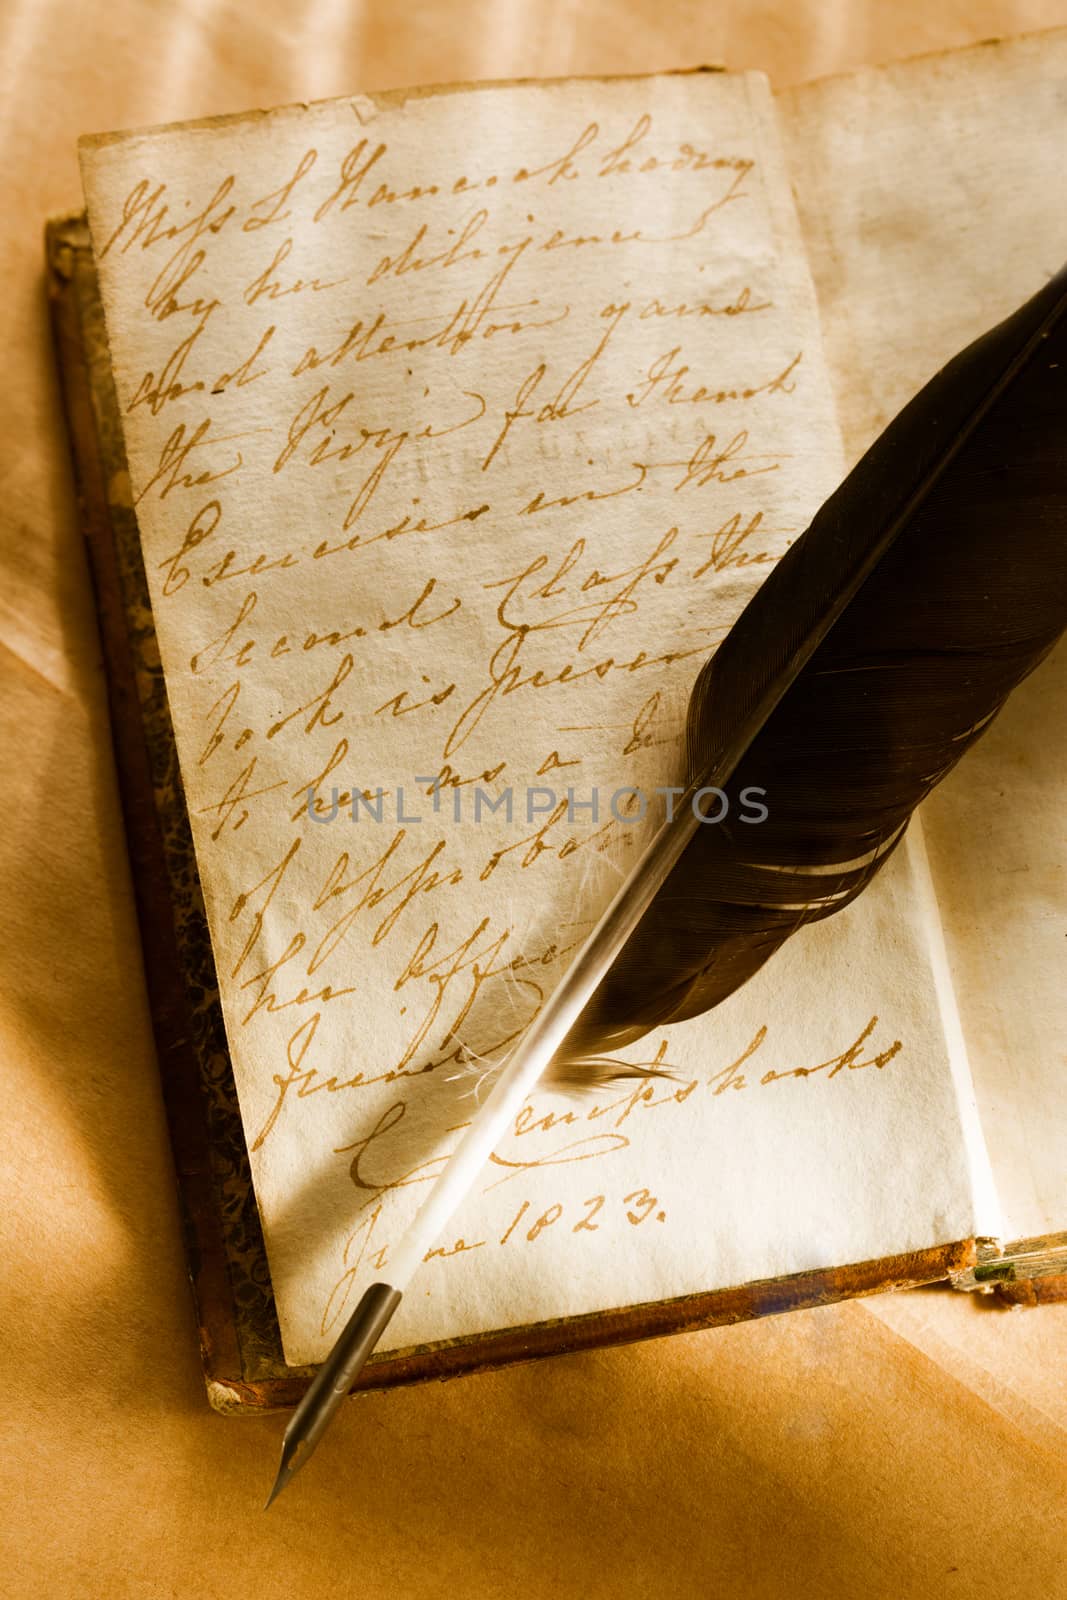 Miss L Hancock having
by her diligence
and attention gained
the Prize for French
Exercises in the
Second Class this
book is presen
to her as a
of Approba
her Affec
Friend
June 1823.
UNLTIMPHOTOS